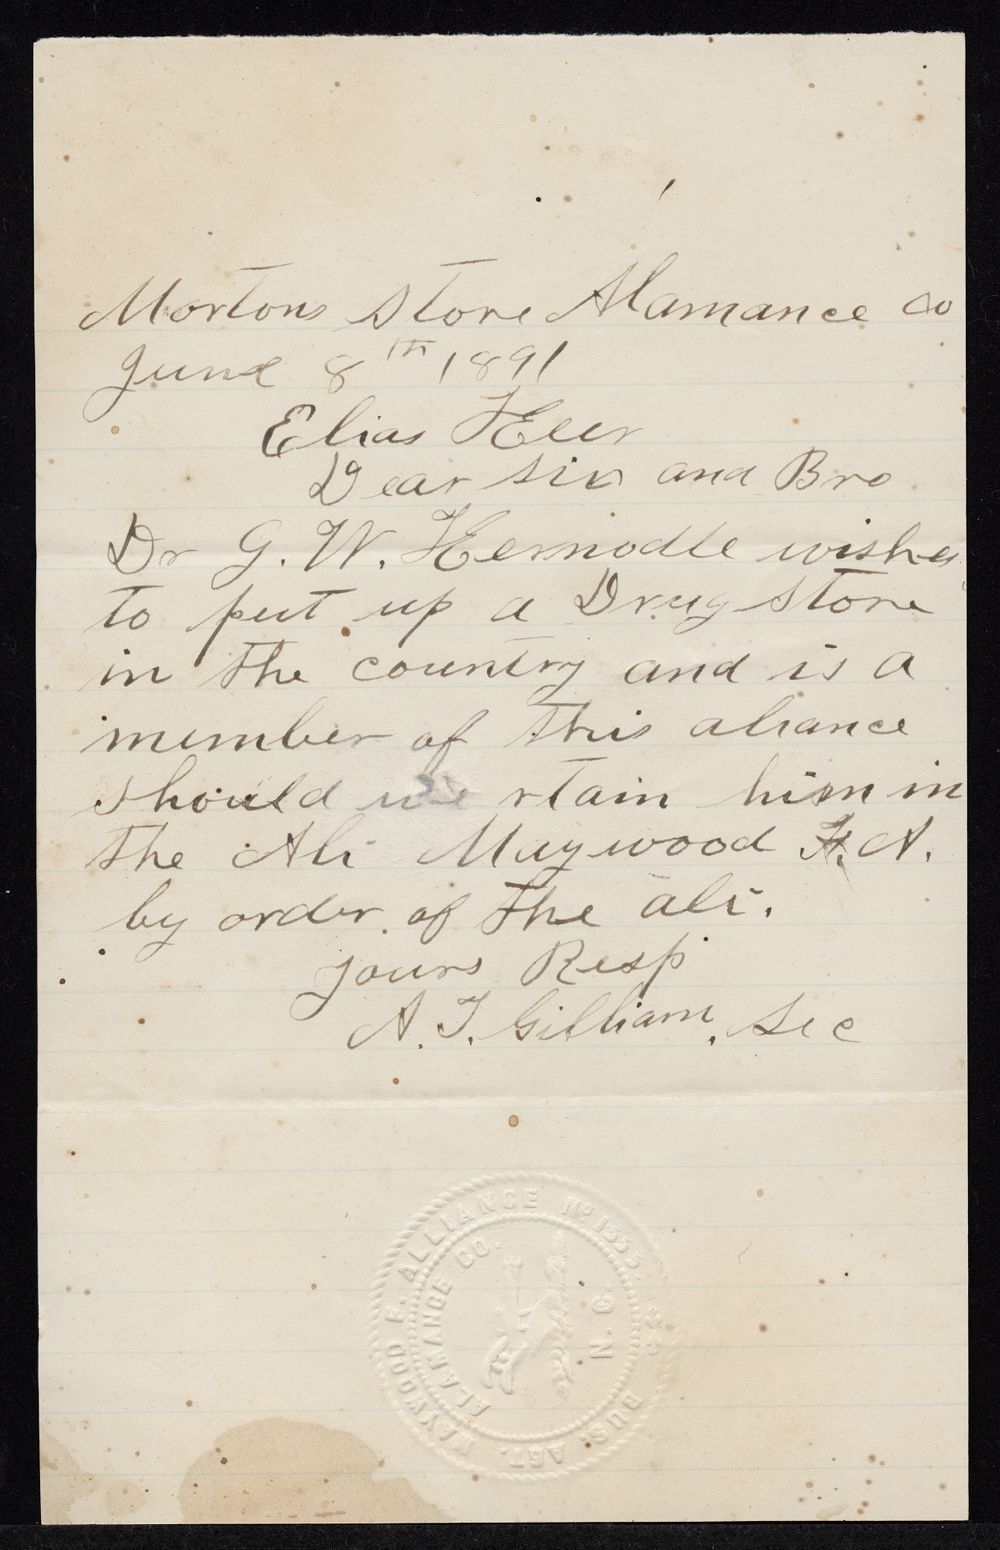 Mortons Store Alamance Co
June 8th 1891
Elias Keer
Dear Sir and Bro
Dr G. W. Kernodle wishes
to put up a Drug store
in the country and is a
member of this aliance
should we rtain him in
the Ali Maywood F. A.
by order of the ali.
yours Resp
A. T. Gilliam, Sec
MAYWOOD F. ALLIANCE No 1555.
ALAMANCE CO.
N. C.
BUS. AGT.